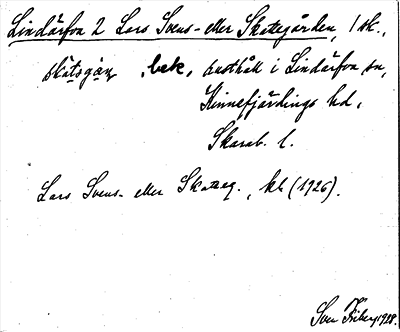 Lindärfva 2 Lars Svens- eller Skattegården, 1 sk.,
skatsgạ̄n, bek., austhåll i Lindärfva sn,
Kinnefjärdings hd,
Skarab. l.
Lars Svens- eller Skatteg., kb (1926).
Sven Friberg 1928.